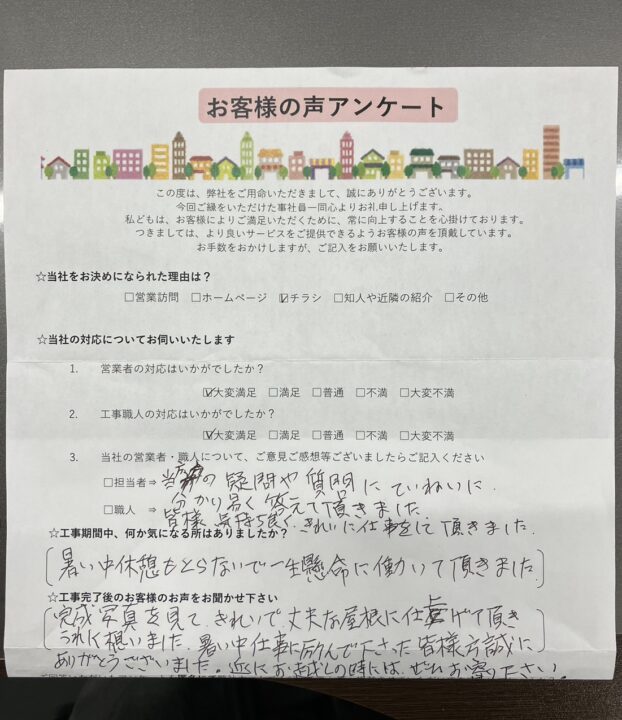 お客様の声アンケート
この度は、弊社をご用命いただきまして、誠にありがとうございます。
今回ご縁をいただいた事社員一同心よりお礼申し上げます。
私どもは、お客様によりご満足いただくために、常に向上することを心掛けております。
つきましては、より良いサービスをご提供できるようお客様の声を頂戴しています。
お手数をおかけしますが、ご記入をお願いいたします。
☆当社をお決めになられた理由は？
□営業訪問 □ホームページ ☑チラシ □知人や近隣の紹介 □その他
☆当社の対応についてお伺いいたします
1. 営業者の対応はいかがでしたか？
☑大変満足 □満足 □普通 □不満 □大変不満
2. 工事職人の対応はいかがでしたか？
☑大変満足 □満足 □普通 □不満 □大変不満
3. 当社の営業者・職人について、ご意見ご感想等ございましたらご記入ください
□担当者⇒ の疑問や質問にていねいに
分かり易く答えて頂きました
□職人 ⇒ 皆様気持ち良く、きれいに仕事をして頂きました。
☆工事期間中、何か気になる所はありましたか？
暑い中休憩もとらないで一生懸命に働いて頂きました
☆工事完了後のお客様のお声をお聞かせ下さい
完成写真を見て、きれいで丈夫な屋根に仕上げて頂き
うれしく想いました。暑い中仕事に励んで下さった皆様方誠に
ありがとうございました。近にお越しの時には、ぜひお寄り下さい。